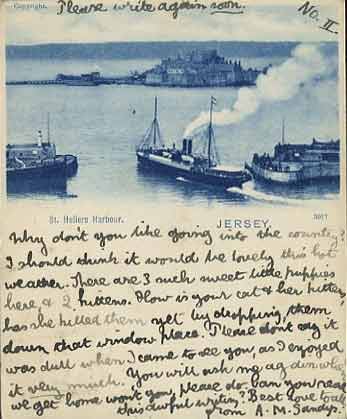 Copyright.
Please write again soon.
No. II
St. Heliers Harbour.
JERSEY
Why don't you like going into the country?
I should think it would be lovely this hot
weather. There are 3 such sweet little puppies
here & 2 kittens. How is your cat & her kittens,
has she killed them yet by dropping them
down that window place. Please dont say it
was dull when I came to see you, as I enjoyed
it very much. You will ask me again when
we get home won't you, please do. Can you read
this awful writing? Best love to all
from I. M. Sandys.